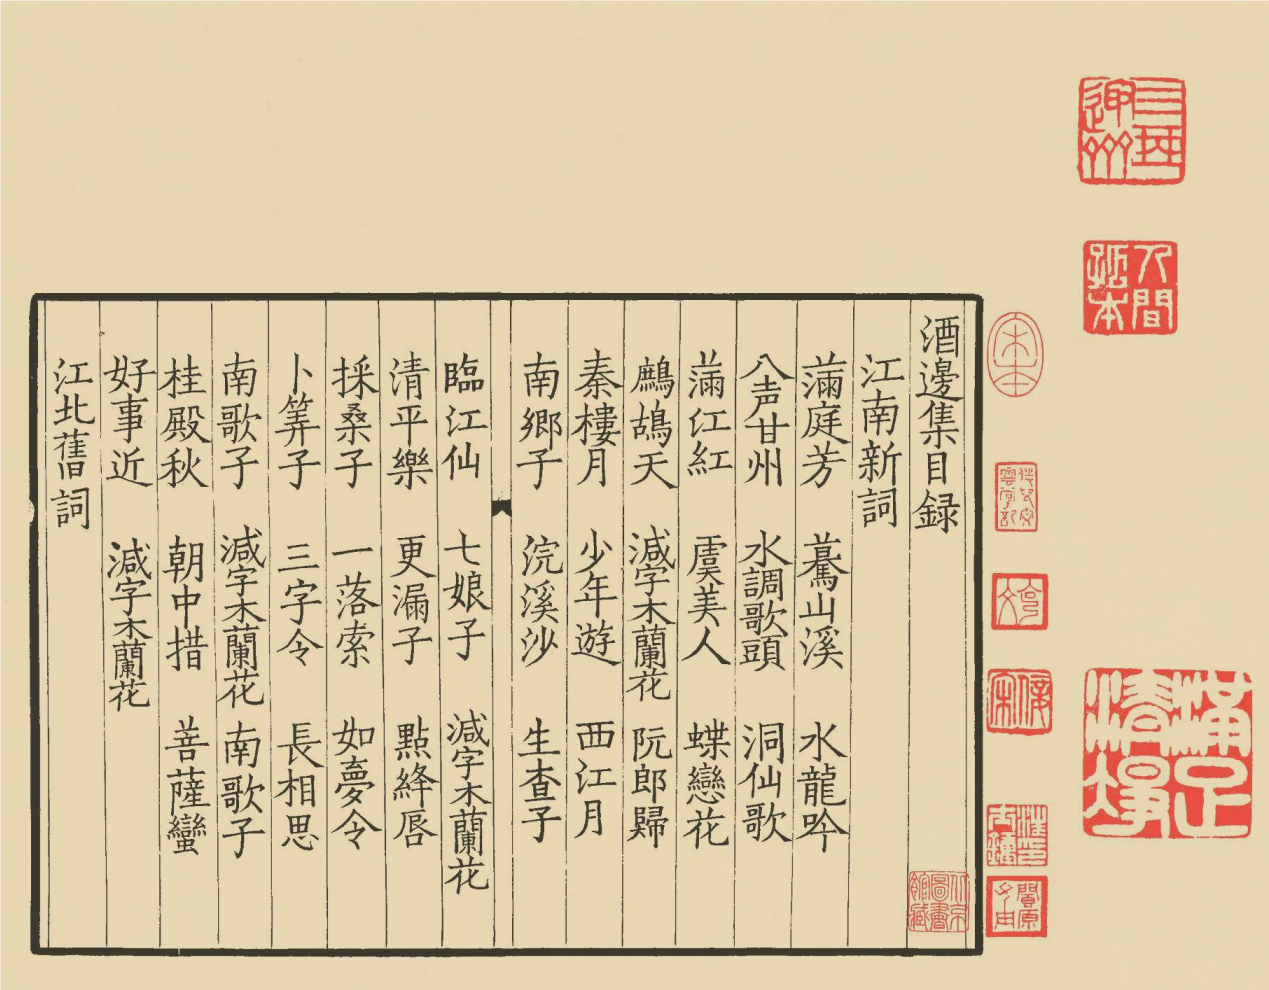 酒邊集目録
江南新詞
滿庭芳 驀山溪 水龍吟
八声甘州 水調歌頭 洞仙歌
滿江紅 虞美人 蝶戀花
鷓鴣天 減字木蘭花 阮郎歸
秦樓月 少年遊 西江月
南鄉子 浣溪沙 生查子
臨江仙 七娘子 減字木蘭花
清平樂 更漏子 點絳唇
採桑子 一落索 如夢令
卜筭子 三字令 長相思
南歌子 減字木蘭花 南歌子
桂殿秋 朝中措 菩薩蠻
好事近 減字木蘭花
江北舊詞
人間孤本
北京圖書館藏
宋本